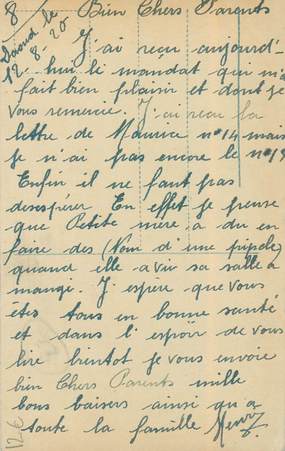 8 Bien Chers Parents
Daoud le
12-8-20
J'ai reçu aujourd'-
hui le mandat qui m'a
fait bien plaisir et dont je
vous remercie. J'ai reçu la
lettre de Maurice n° 14 mais
je n'ai pas encore le n° 13
Enfin il ne faut pas
desespérer En effet je pense
que Petite mère a du en
faire des (Nom d'une pipole)
quand elle a vir sa salle à
mange. J'espere que vous
êtes tous en bonne santé
et dans l'espoir de vous
lire bientot je vous envoie
bien Chers Parents mille
bons baisers ainsi qu'a
toute la famille Henry
12€